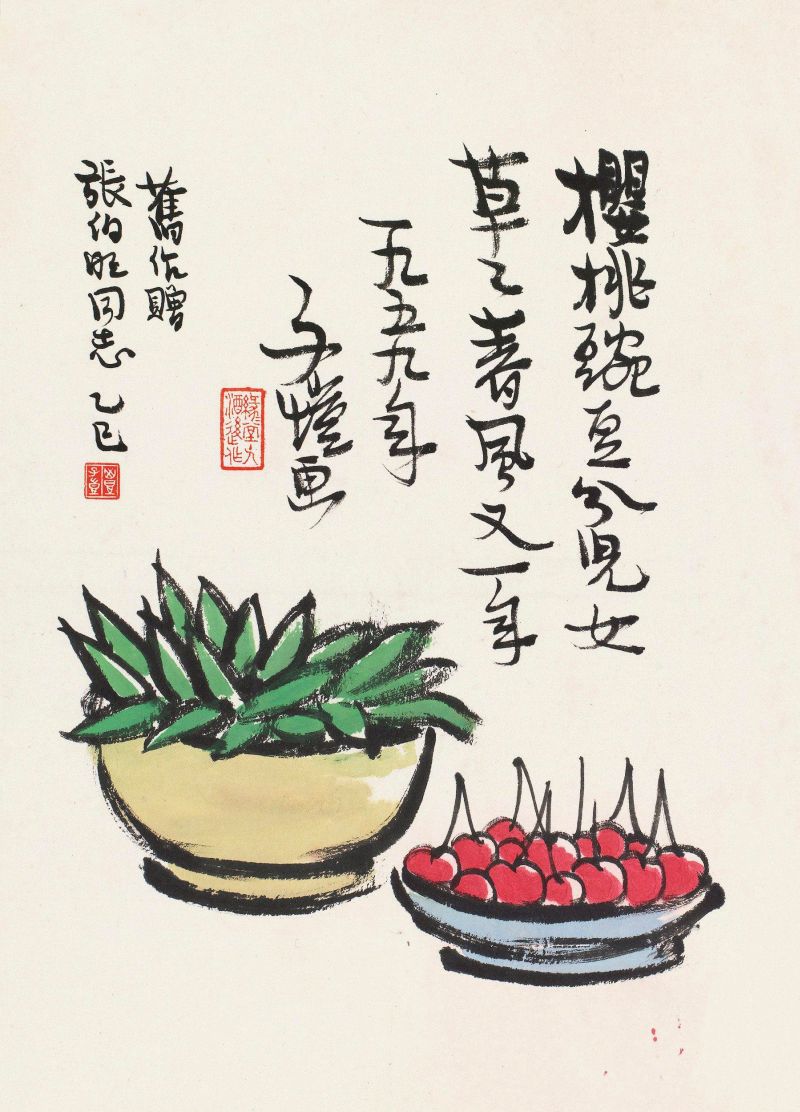 櫻桃豌豆分兒女
草々春風又一年
一九五九年
子愷画
舊作贈
張伯同志 乙巳